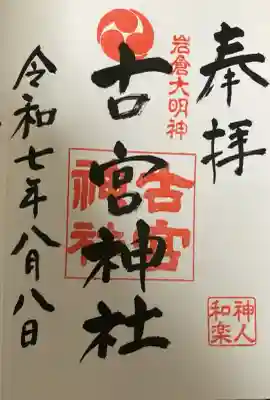 奉拝
岩倉大明神
古宮神社
古宮神社
神人和楽
令和七年八月八日